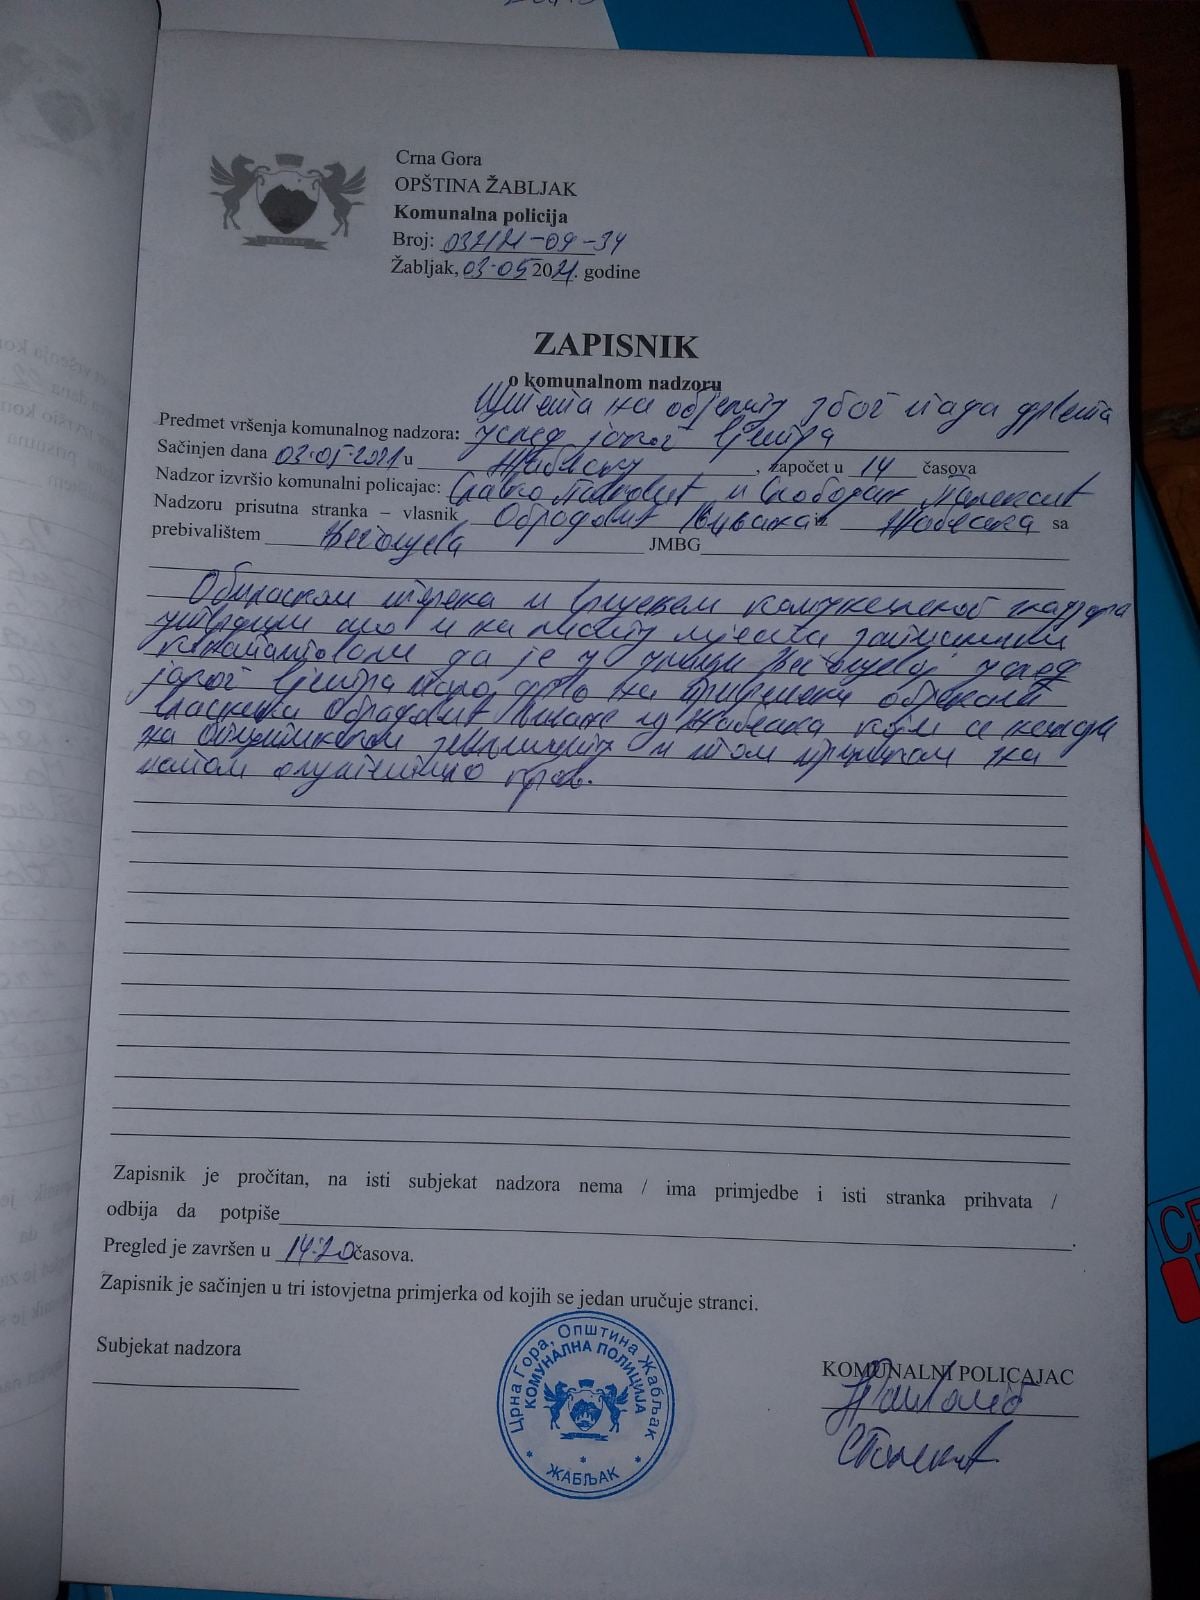 Crna Gora
OPŠTINA ŽABLJAK
Komunalna policija
Broj: 032/21-09-34
Žabljak, 03.05 2021. godine
ZAPISNIK
o komunalnom nadzoru
Штета на објекту због пада дрвета
Predmet vršenja komunalnog nadzora: услед јаког вјетра
Sačinjen dana 03.05.2021 u Жабљаку, započet u 14 časova
Nadzor izvršio komunalni policajac: и Слободан
Nadzoru prisutna stranka – vlasnik Обрадовић iz Жабљака sa
prebivalištem Његошева JMBG
Обиласком терена и вршењем комуналног надзора
и на лицу мјеста записнички
констатовали да је у улици Његошевој услед
јаког вјетра пало дрво на објекат
власника Обрадовић из Жабљака који се налази
на и том приликом на
истом оштетило кров.
Zapisnik je pročitan, na isti subjekat nadzora nema / ima primjedbe i isti stranka prihvata /
odbija da potpiše
Pregled je završen u 14:20 časova.
Zapisnik je sačinjen u tri istovjetna primjerka od kojih se jedan uručuje stranci.
Subjekat nadzora
KOMUNALNI POLICAJAC
Црна Гора, Општина Жабљак
КОМУНАЛНА ПОЛИЦИЈА
ЖАБЉАК